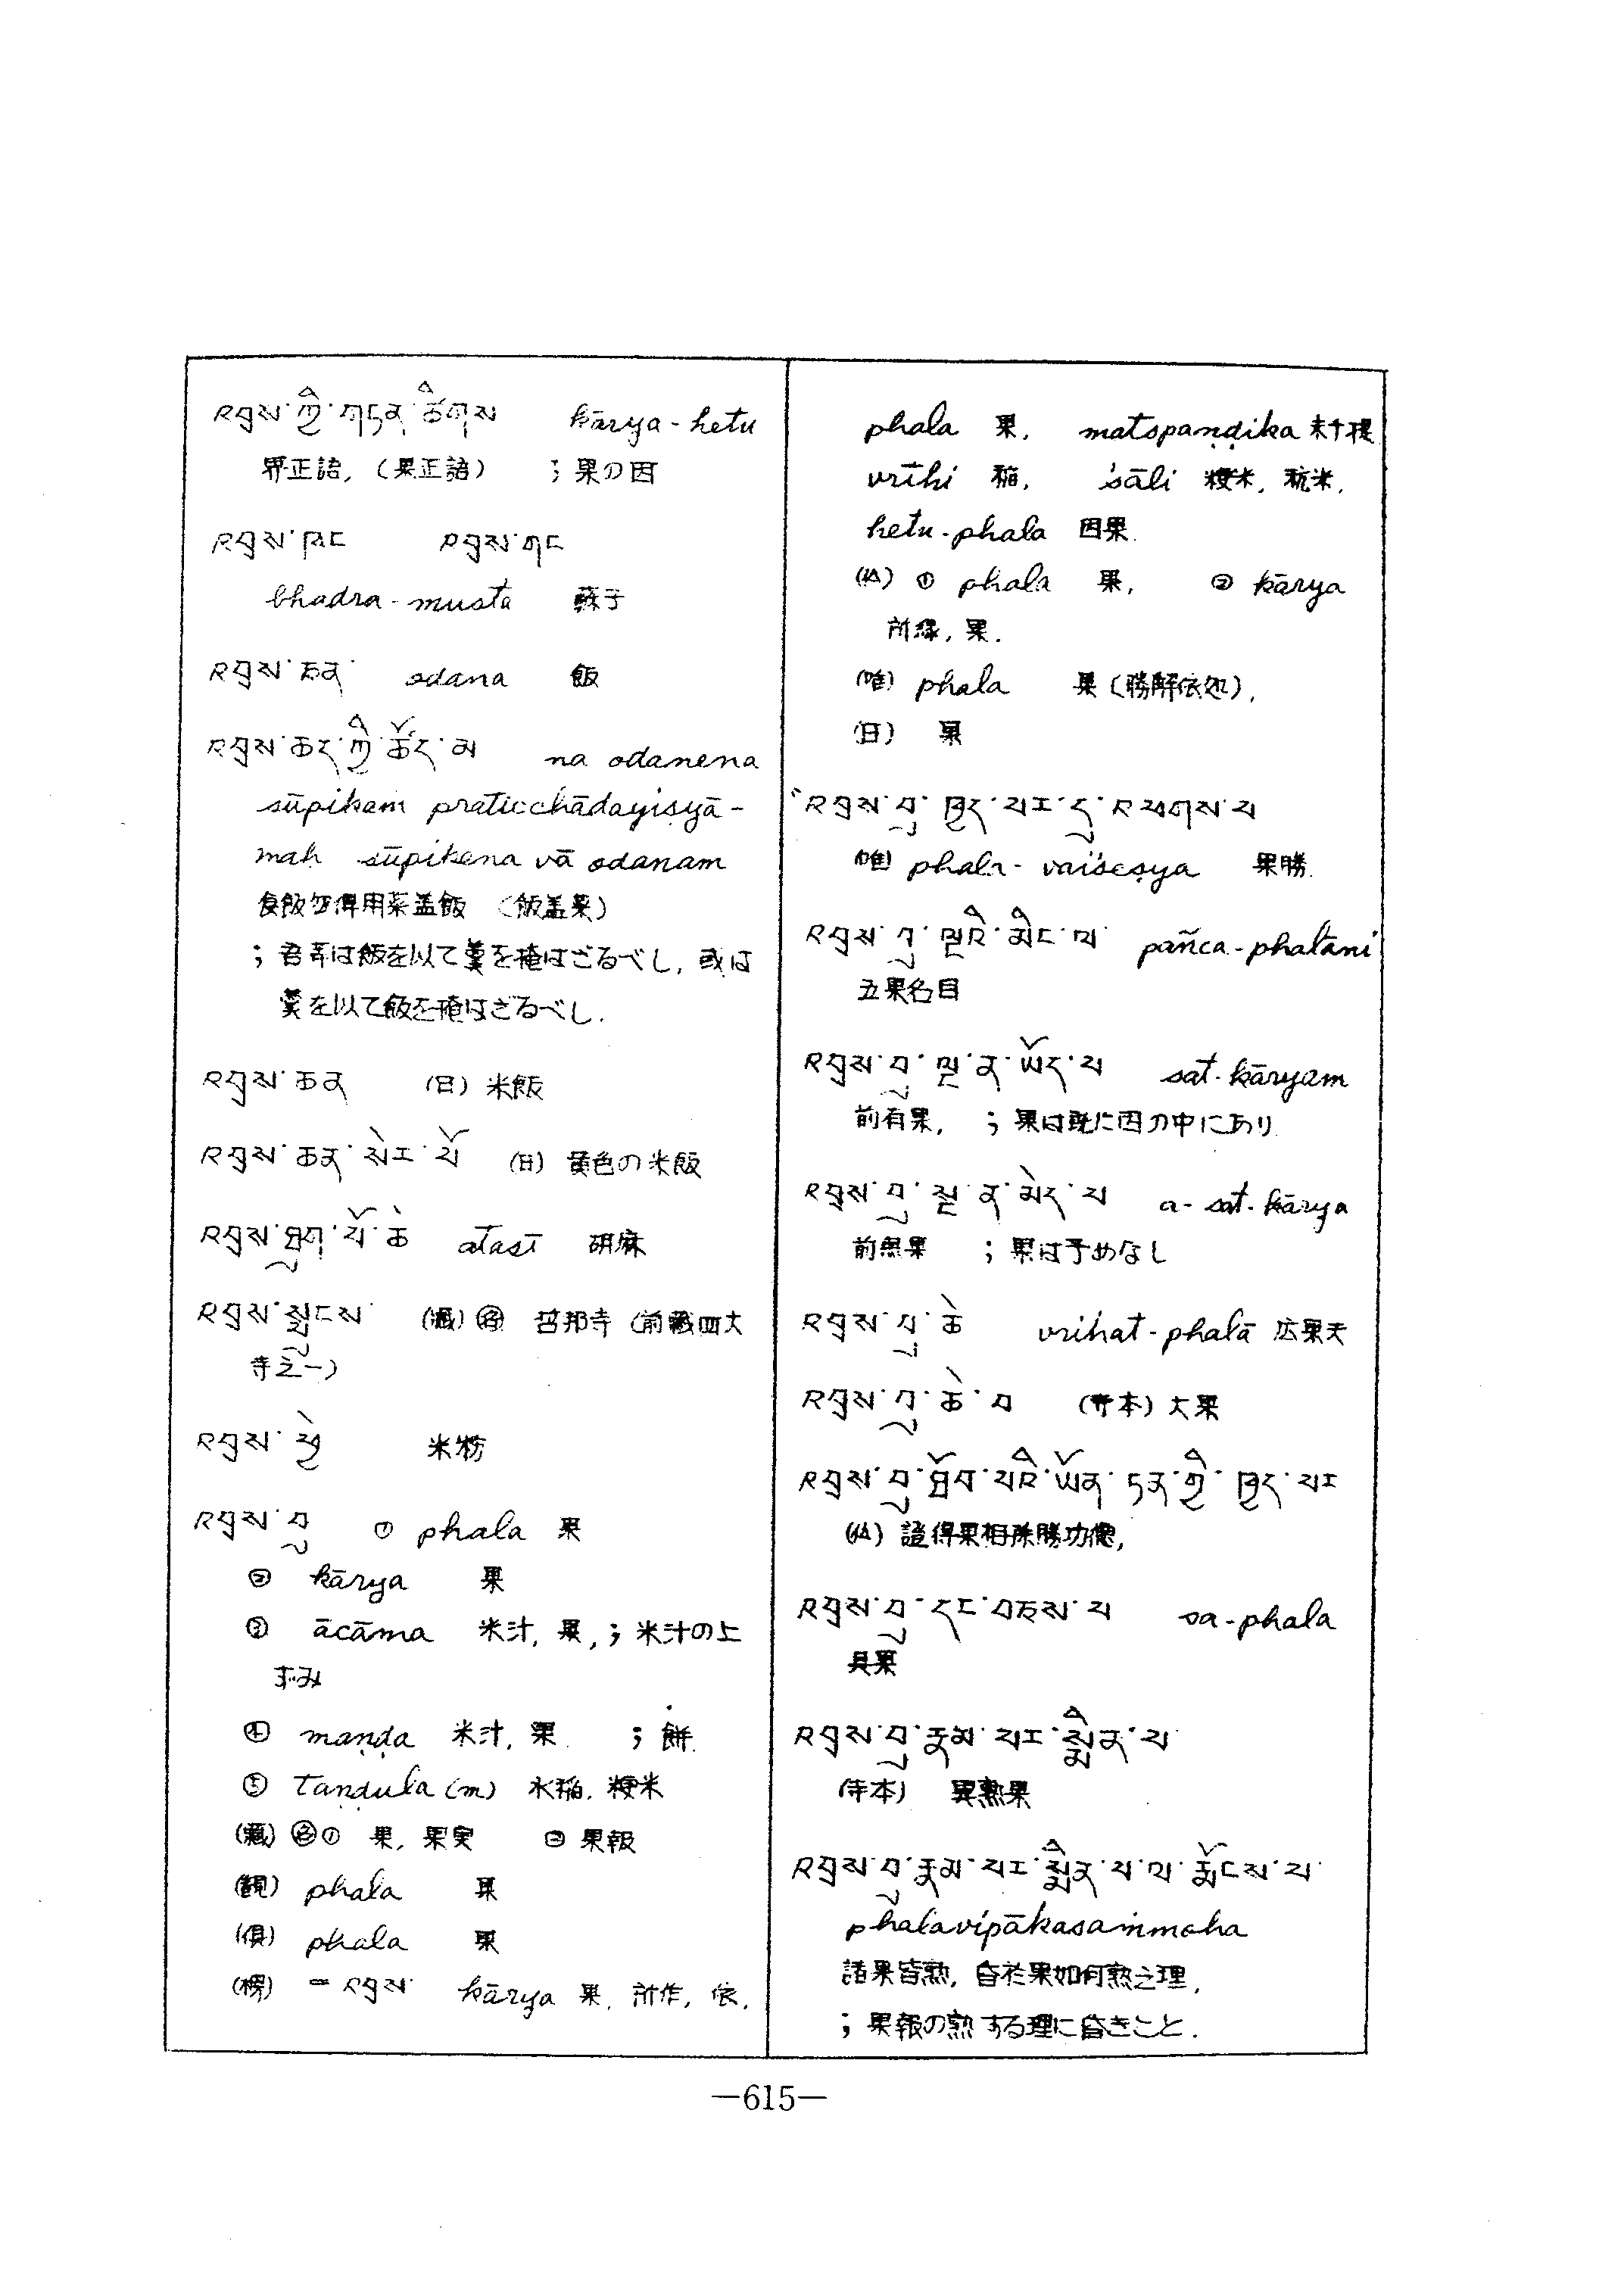 འབྲས་ཀྱི་གཏན་ཚིགས kārya-hetu
界正語,（果正語） ；果の因
འབྲས་ཁང འབྲས་གང
bhadra-musta 蘇子
འབྲས་ཅན་ odana 飯
འབྲས་ཆང་ཀྱི་ཚོད་མ na odanena
sūpikaṁ praticchādayiṣyā-
mah sūpikena vā odanam
食飯勿得用菜盖飯（飯盖菜）
；吾等は飯を以て羹を掩はざるべし, 或は
羹を以て飯を掩はざるべし.
འབྲས་ཆན （日）米飯
འབྲས་ཆན་སེར་པོ （日）黄色の米飯
འབྲས་ཐུག་པོ་ཆེ atasī 胡麻
འབྲས་སྤུངས་ （藏） 哲邦寺（前藏四大
寺之一）
འབྲས་ཕྱེ 米粉
འབྲས་བུ ① phala 果
② kārya 果
③ ācāma 米汁, 果,；米汁の上
ずみ
④ maṇḍa 米汁, 果 ；餅.
⑤ taṇḍula (m) 水稲, 粳米
（藏） ① 果, 果実 ㊁ 果報
（觀） phala 果
（倶） phala 果
（楞） = འབྲས་ kārya 果, 所作, 依,
phala 果, matspaṇḍika
vrīhi 稲, śāli 粳米, 秔米,
hetu-phala 因果.
（仏） ① phala 果, ② kārya
所縁, 果.
（唯） phala 果（勝解依処）,
（日） 果
འབྲས་བུ་ཁྱད་པར་དུ་འཕགས་པ
（唯） phala-vaiśeṣya 果勝.
འབྲས་བུ་ལྔའི་མིང་ལ pañca-phalāni
五果名目
འབྲས་བུ་སྔ་ན་ཡོད་པ sat-kāryam
前有果, ；果は既に因の中にあり
འབྲས་བུ་སྔ་ན་མེད་པ a-sat-kārya
前無果 ；果は予めなし
འབྲས་བུ་ཆེ vrihat-phalā 広果天
འབྲས་བུ་ཆེ་བ （寺本）大果
འབྲས་བུ་ཐོབ་པའི་ཡོན་ཏན་གྱི་ཁྱད་པར
（仏）證得果相殊勝功徳,
འབྲས་བུ་དང་བཅས་པ sa-phala
具果
འབྲས་བུ་རྣམ་པར་སྨིན་པ་
（寺本） 異熟果
འབྲས་བུ་རྣམ་པར་སྨིན་པ་ལ་རྨོངས་པ་
phalavipākasaṁmoha
諸果皆熟, 昏於果如何熟之理,
；果報の熟する理に昏きこと.
—615—